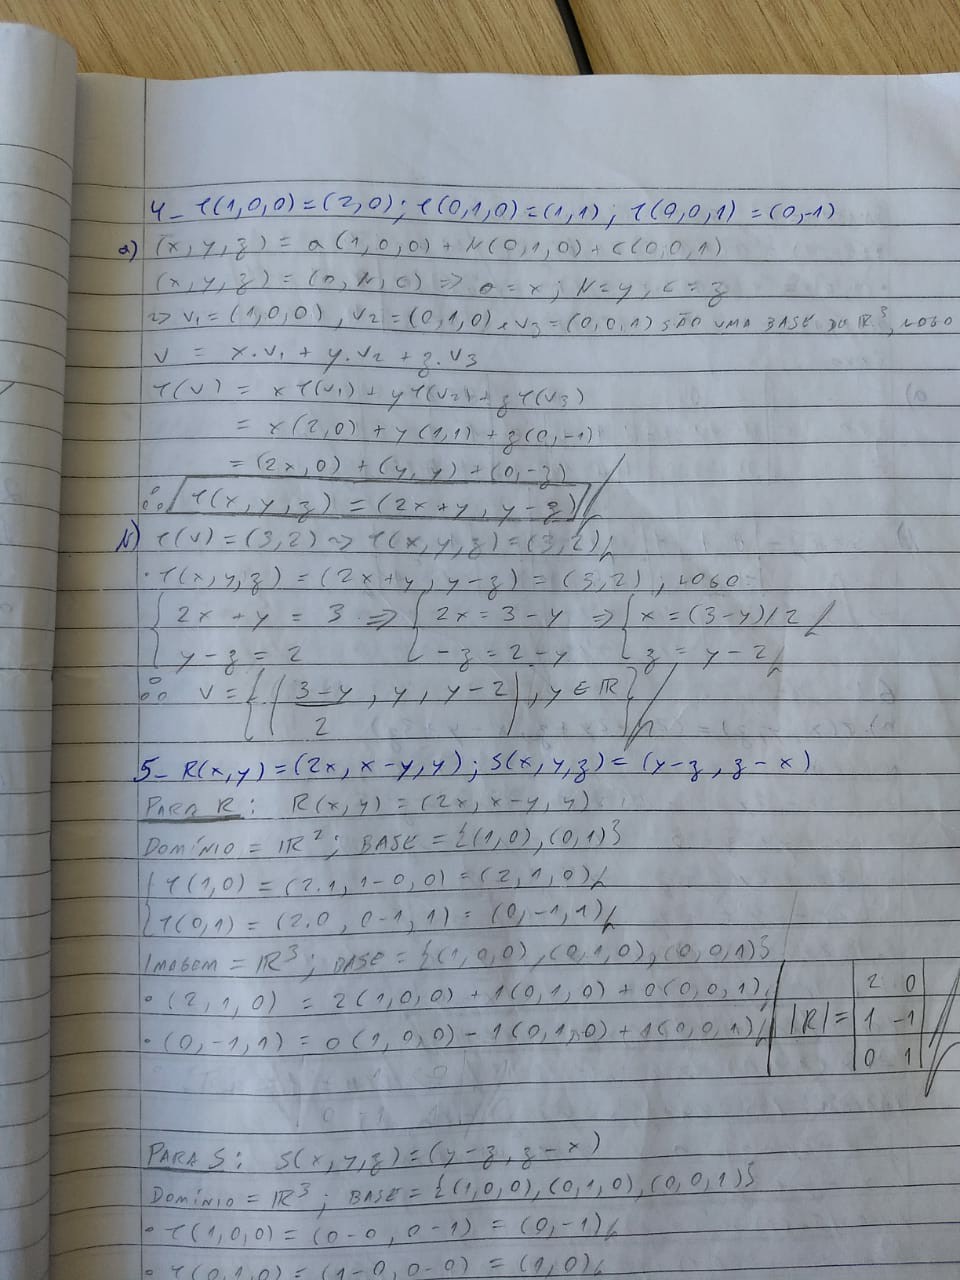 4- T(1,0,0)=(2,0); T(0,1,0)=(1,1); T(0,0,1)=(0,-1)
a) (x,y,z) = a(1,0,0)+b(0,1,0)+c(0,0,1)
(x,y,z) = (a,b,c) => a=x; b=y, c=z
=> v1=(1,0,0), v2=(0,1,0) e v3=(0,0,1) SÃO UMA BASE DO IR³, LOGO
v = x.v1 + y.v2 + z.v3
T(v) = xT(v1)+yT(v2)+zT(v3)
= x(2,0)+y(1,1)+z(0,-1)
= (2x,0)+(y,y)+(0,-z)
∴ T(x,y,z)=(2x+y, y-z)
b) T(v)=(3,2) => T(x,y,z)=(3,2)
• T(x,y,z)=(2x+y, y-z)=(3,2), LOGO:
{ 2x+y=3 => { 2x=3-y => { x=(3-y)/2
y-z=2 -z=2-y z=y-2
∴ v={(3-y/2, y, y-2), y∈IR}
5- R(x,y)=(2x,x-y,y); S(x,y,z)=(y-z,z-x)
PARA R: R(x,y)=(2x,x-y,y)
DOMÍNIO = IR²; BASE = {(1,0),(0,1)}
{ T(1,0)=(2.1,1-0,0)=(2,1,0)
T(0,1)=(2.0,0-1,1)=(0,-1,1)
IMAGEM = IR³; BASE = {(1,0,0),(0,1,0),(0,0,1)}
• (2,1,0) = 2(1,0,0)+1(0,1,0)+0(0,0,1)
• (0,-1,1) = 0(1,0,0)-1(0,1,0)+1(0,0,1)
|R|= |2 0|
|1 -1|
|0 1|
PARA S: S(x,y,z)=(y-z,z-x)
DOMÍNIO = IR³; BASE = {(1,0,0),(0,1,0),(0,0,1)}
• T(1,0,0)=(0-0,0-1)=(0,-1)
• T(0,1,0)=(1-0,0-0)=(1,0)